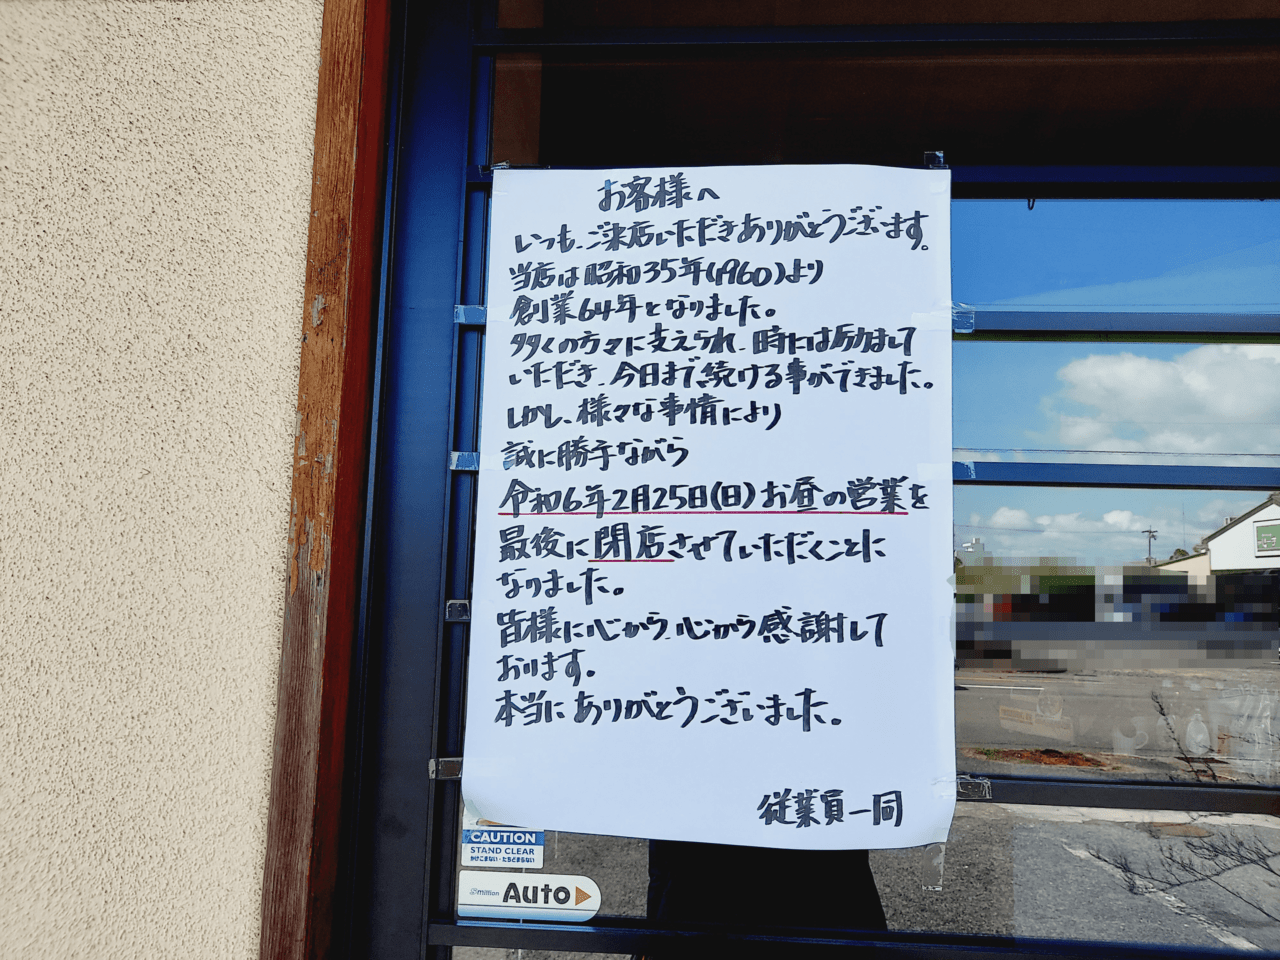 お客様へ
いつも、ご来店いただきありがとうございます。
当店は昭和35年(1960)より
創業64年となりました。
多くの方々に支えられ、時には励まして
いただき、今日まで続ける事ができました。
しかし、様々な事情により
誠に勝手ながら
令和6年2月25日(日)お昼の営業を
最後に閉店させていただくことに
なりました。
皆様に心から、心から感謝して
おります。
本当にありがとうございました。
従業員一同
CAUTION
STAND CLEAR
かけこまない・たちどまらない
million AUTO